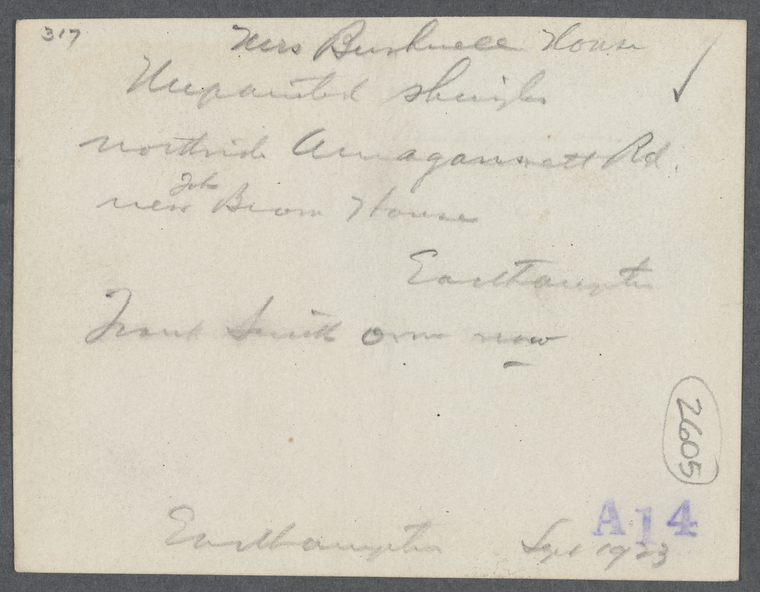 317
Mrs Bushnell House
Unpainted shingles
northside Amagansett Rd.
near Job
House
Easthampton
Frank Smith own now
2605
A14
Easthampton Sept 1923